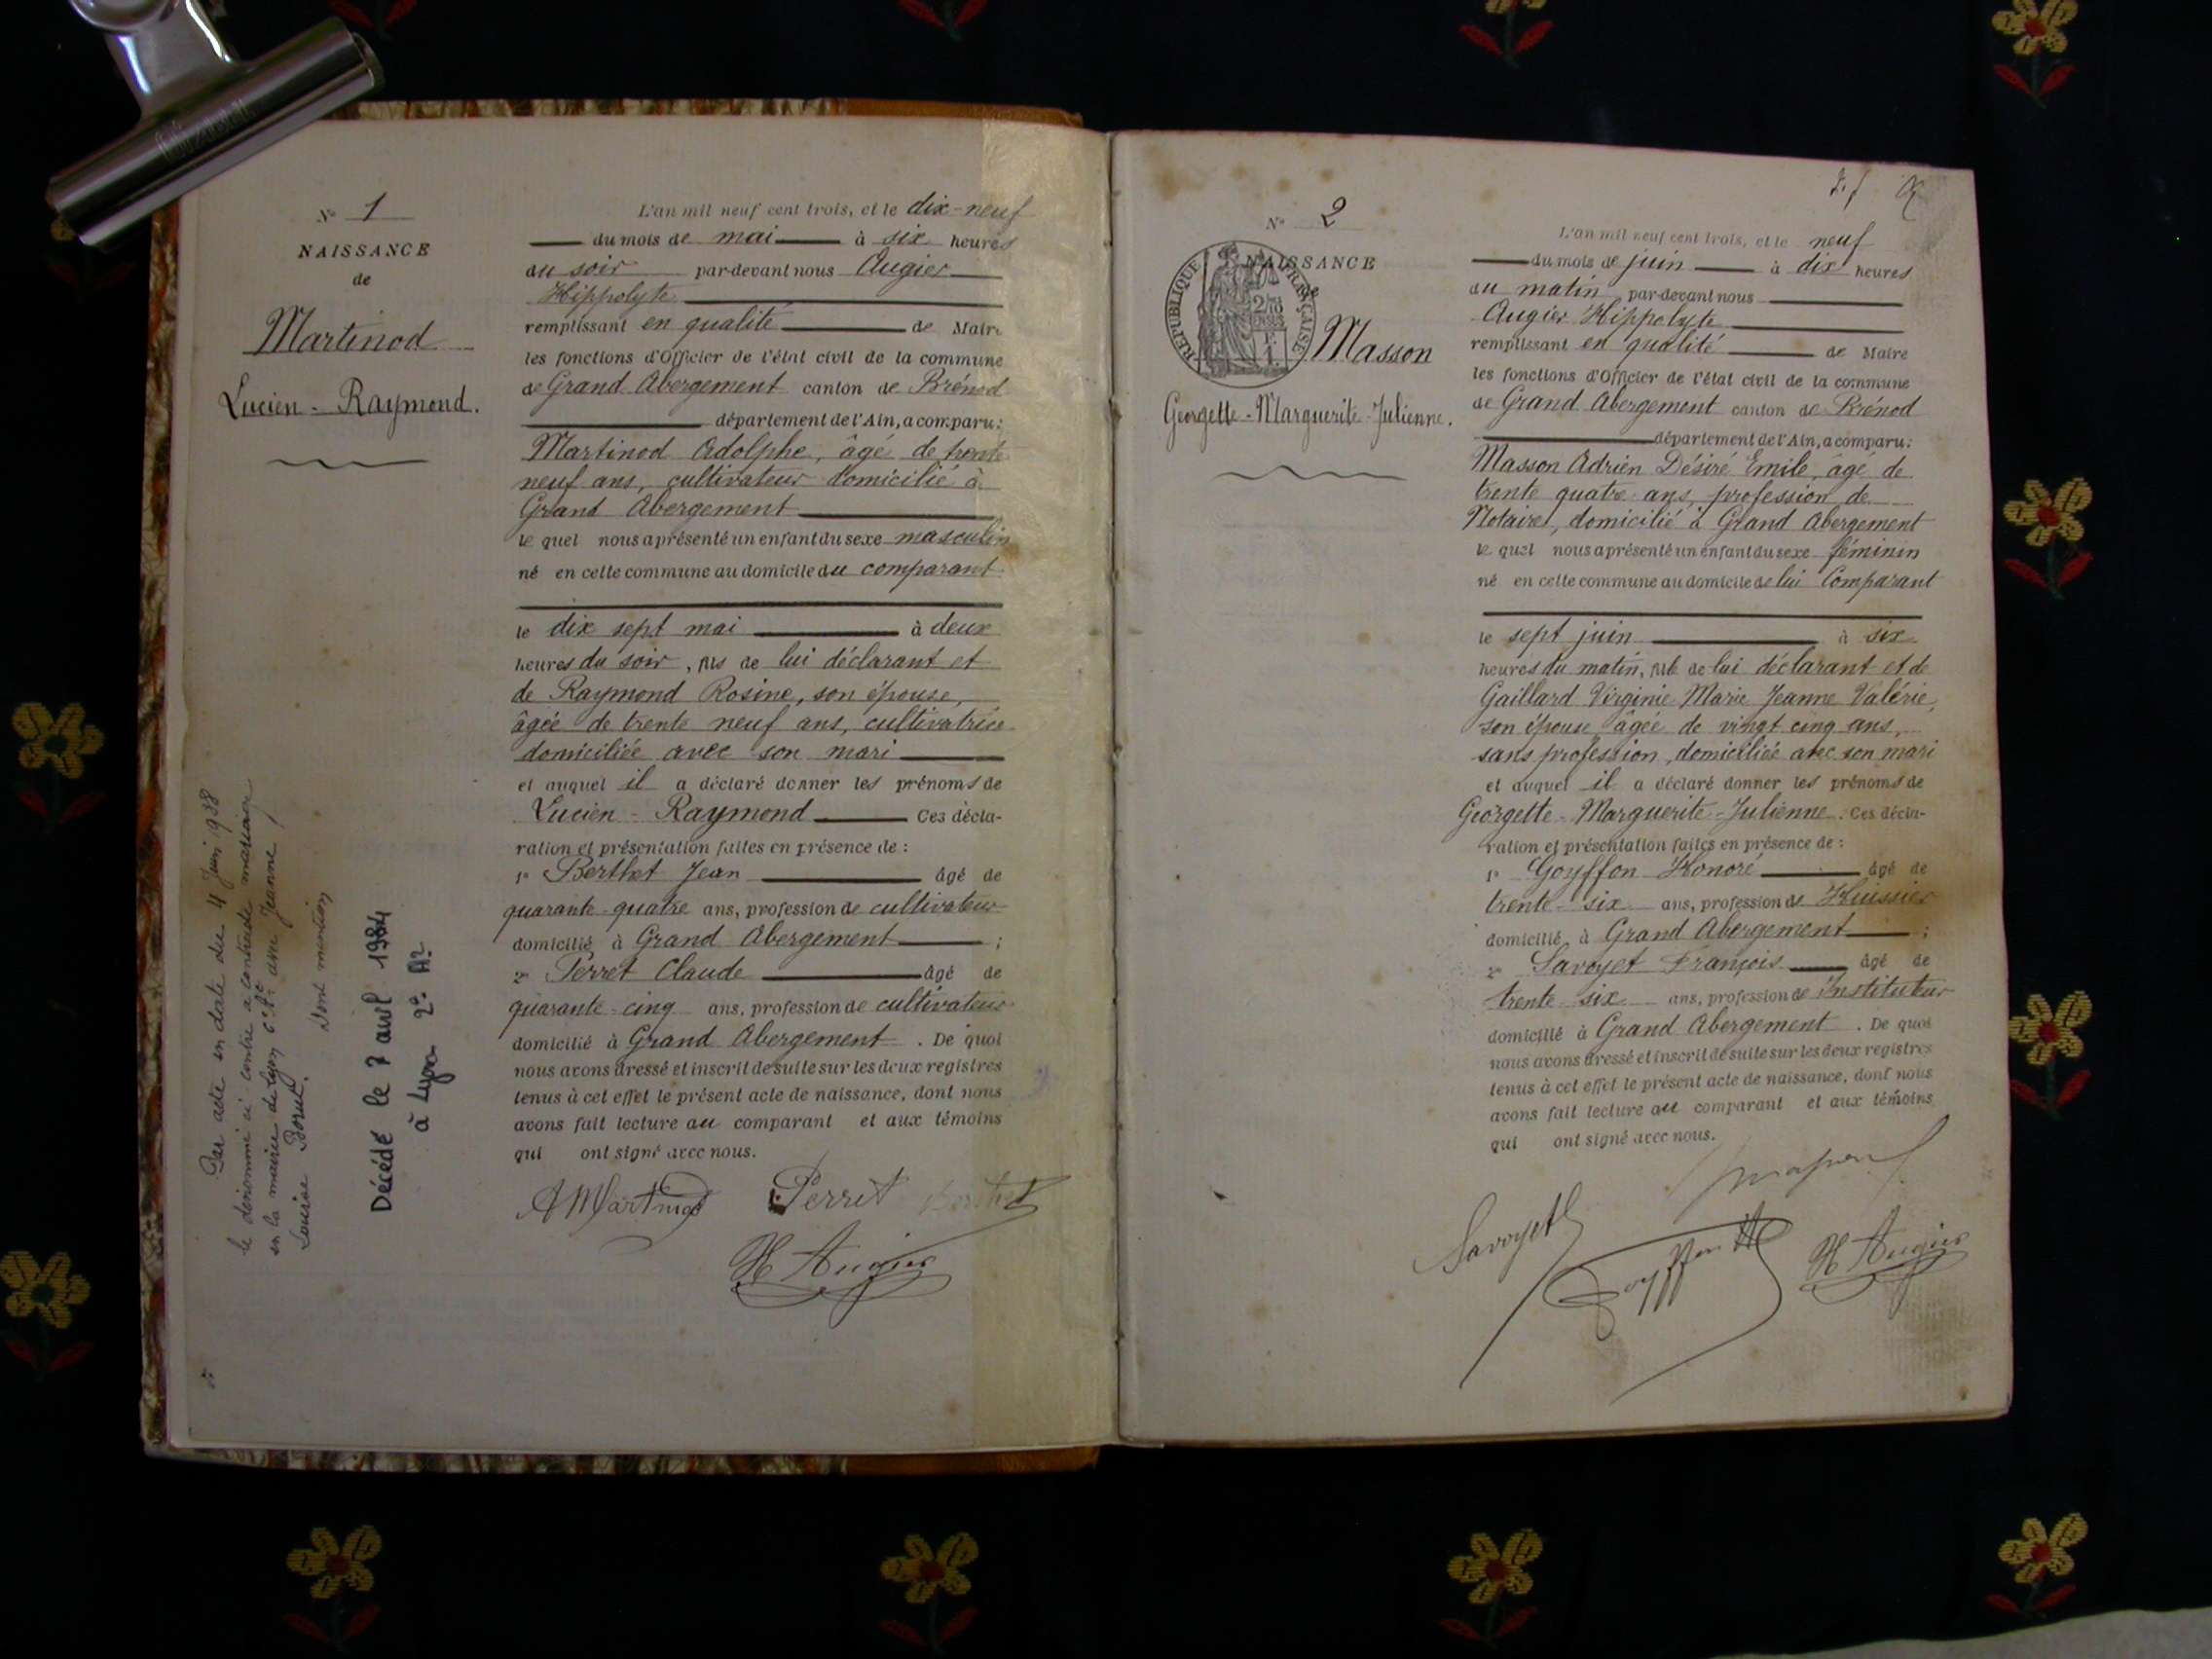 N° 1
NAISSANCE
de
Martinod
Lucien - Raymond.
Par acte en date du 4 Juin 1938
le dénommé ci contre a contracté mariage
en la mairie de Lyon avec Jeanne
Louise
Dont mention
Décédé le 7 avril 1984
à Lyon 2e Art
L'an mil neuf cent trois, et le dix-neuf
du mois de mai à six heures
du soir par-devant nous Augier
Hippolyte
remplissant en qualité de Maire
les fonctions d'Officier de l'état civil de la commune
de Grand Abergement canton de Brénod
département de l'Ain, a comparu:
Martinod Adolphe, âgé de trente
neuf ans, cultivateur domicilié à
Grand Abergement
le quel nous a présenté un enfant du sexe masculin
né en cette commune au domicile du comparant
le dix sept mai à deux
heures du soir, fils de lui déclarant et
de Raymond Rosine, son épouse,
âgée de trente neuf ans, cultivatrice
domiciliée avec son mari
et auquel il a déclaré donner les prénoms de
Lucien - Raymond Ces décla-
ration et présentation faites en présence de :
1° Berthet Jean âgé de
quarante-quatre ans, profession de cultivateur
domicilié à Grand Abergement ;
2° Perret Claude âgé de
quarante-cinq ans, profession de cultivateur
domicilié à Grand Abergement . De quoi
nous avons dressé et inscrit de suite sur les deux registres
tenus à cet effet le présent acte de naissance, dont nous
avons fait lecture au comparant et aux témoins
qui ont signé avec nous.
A Martinod Perret Berthet
H Augier
N° 2
NAISSANCE
de
RÉPUBLIQUE FRANÇAISE
Masson
Georgette - Marguerite - Julienne.
L'an mil neuf cent trois, et le neuf
du mois de juin à dix heures
du matin par-devant nous
Augier Hippolyte
remplissant en qualité de Maire
les fonctions d'Officier de l'état civil de la commune
de Grand Abergement canton de Brénod
département de l'Ain, a comparu:
Masson Adrien Désiré Emile, âgé de
trente quatre ans, profession de
Notaire, domicilié à Grand Abergement
le quel nous a présenté un enfant du sexe féminin
né en cette commune au domicile de lui Comparant
le sept juin à six
heures du matin, fille de lui déclarant et de
Gaillard Virginie Marie Jeanne Valérie,
son épouse âgée de vingt cinq ans,
sans profession, domiciliée avec son mari
et auquel il a déclaré donner les prénoms de
Georgette - Marguerite - Julienne. Ces décla-
ration et présentation faites en présence de :
1° Goyffon Honoré âgé de
trente-six ans, profession de Huissier
domicilié à Grand Abergement ;
2° Savoyet François âgé de
trente-six ans, profession de Instituteur
domicilié à Grand Abergement . De quoi
nous avons dressé et inscrit de suite sur les deux registres
tenus à cet effet le présent acte de naissance, dont nous
avons fait lecture au comparant et aux témoins
qui ont signé avec nous.
Masson
Savoyet
Goyffon H
H Augier